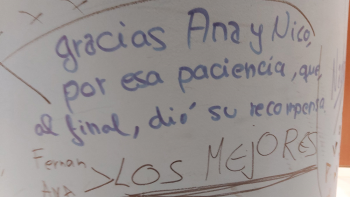 gracias Ana y Nico,
por esa paciencia, que
al final, dió su recompensa
Fernan
Ana
> LOS MEJORES